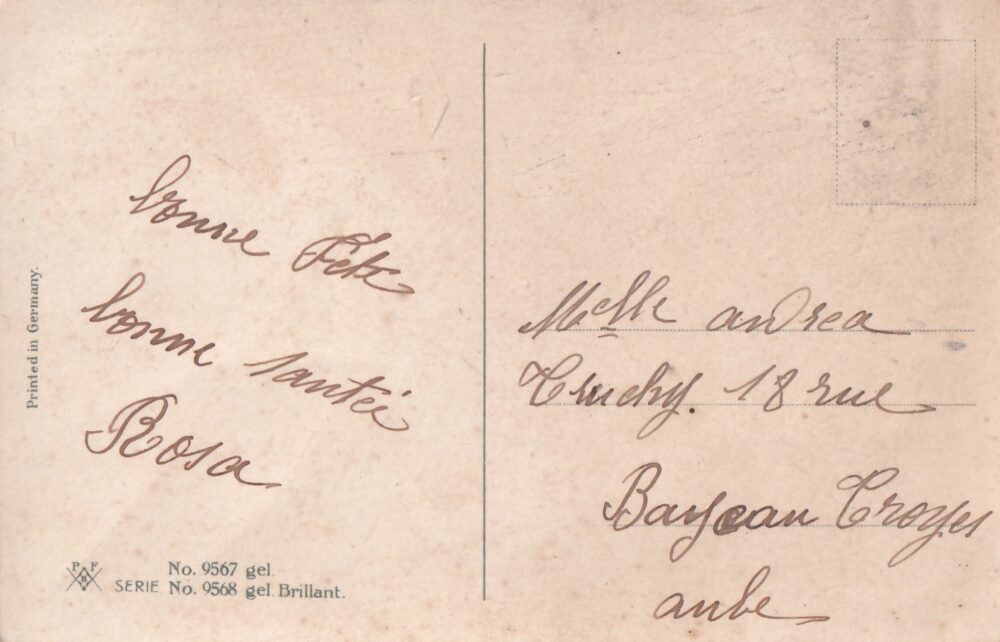 bonne Fête
bonne santée
Rosa
Printed in Germany.
P F B
No. 9567 gel.
SERIE No. 9568 gel. Brillant.
Melle andrea
Truchy. 18 rue
Troyes
aube